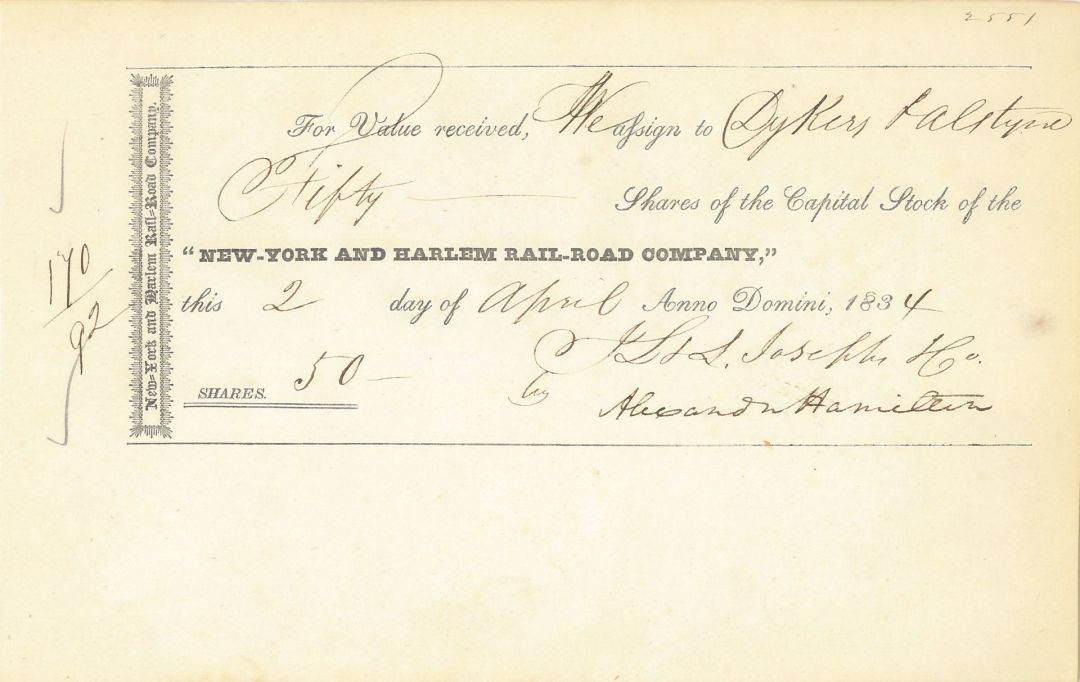 2551
New-York and Harlem Rail-Road Company.
170
92
For Value received, We assign to Dykers & Alstyne
Fifty — Shares of the Capital Stock of the
"NEW-YORK AND HARLEM RAIL-ROAD COMPANY,"
this 2 day of April Anno Domini, 1834
J. L. & S. Josephs & Co.
SHARES. 50 —
by Alexander Hamilton